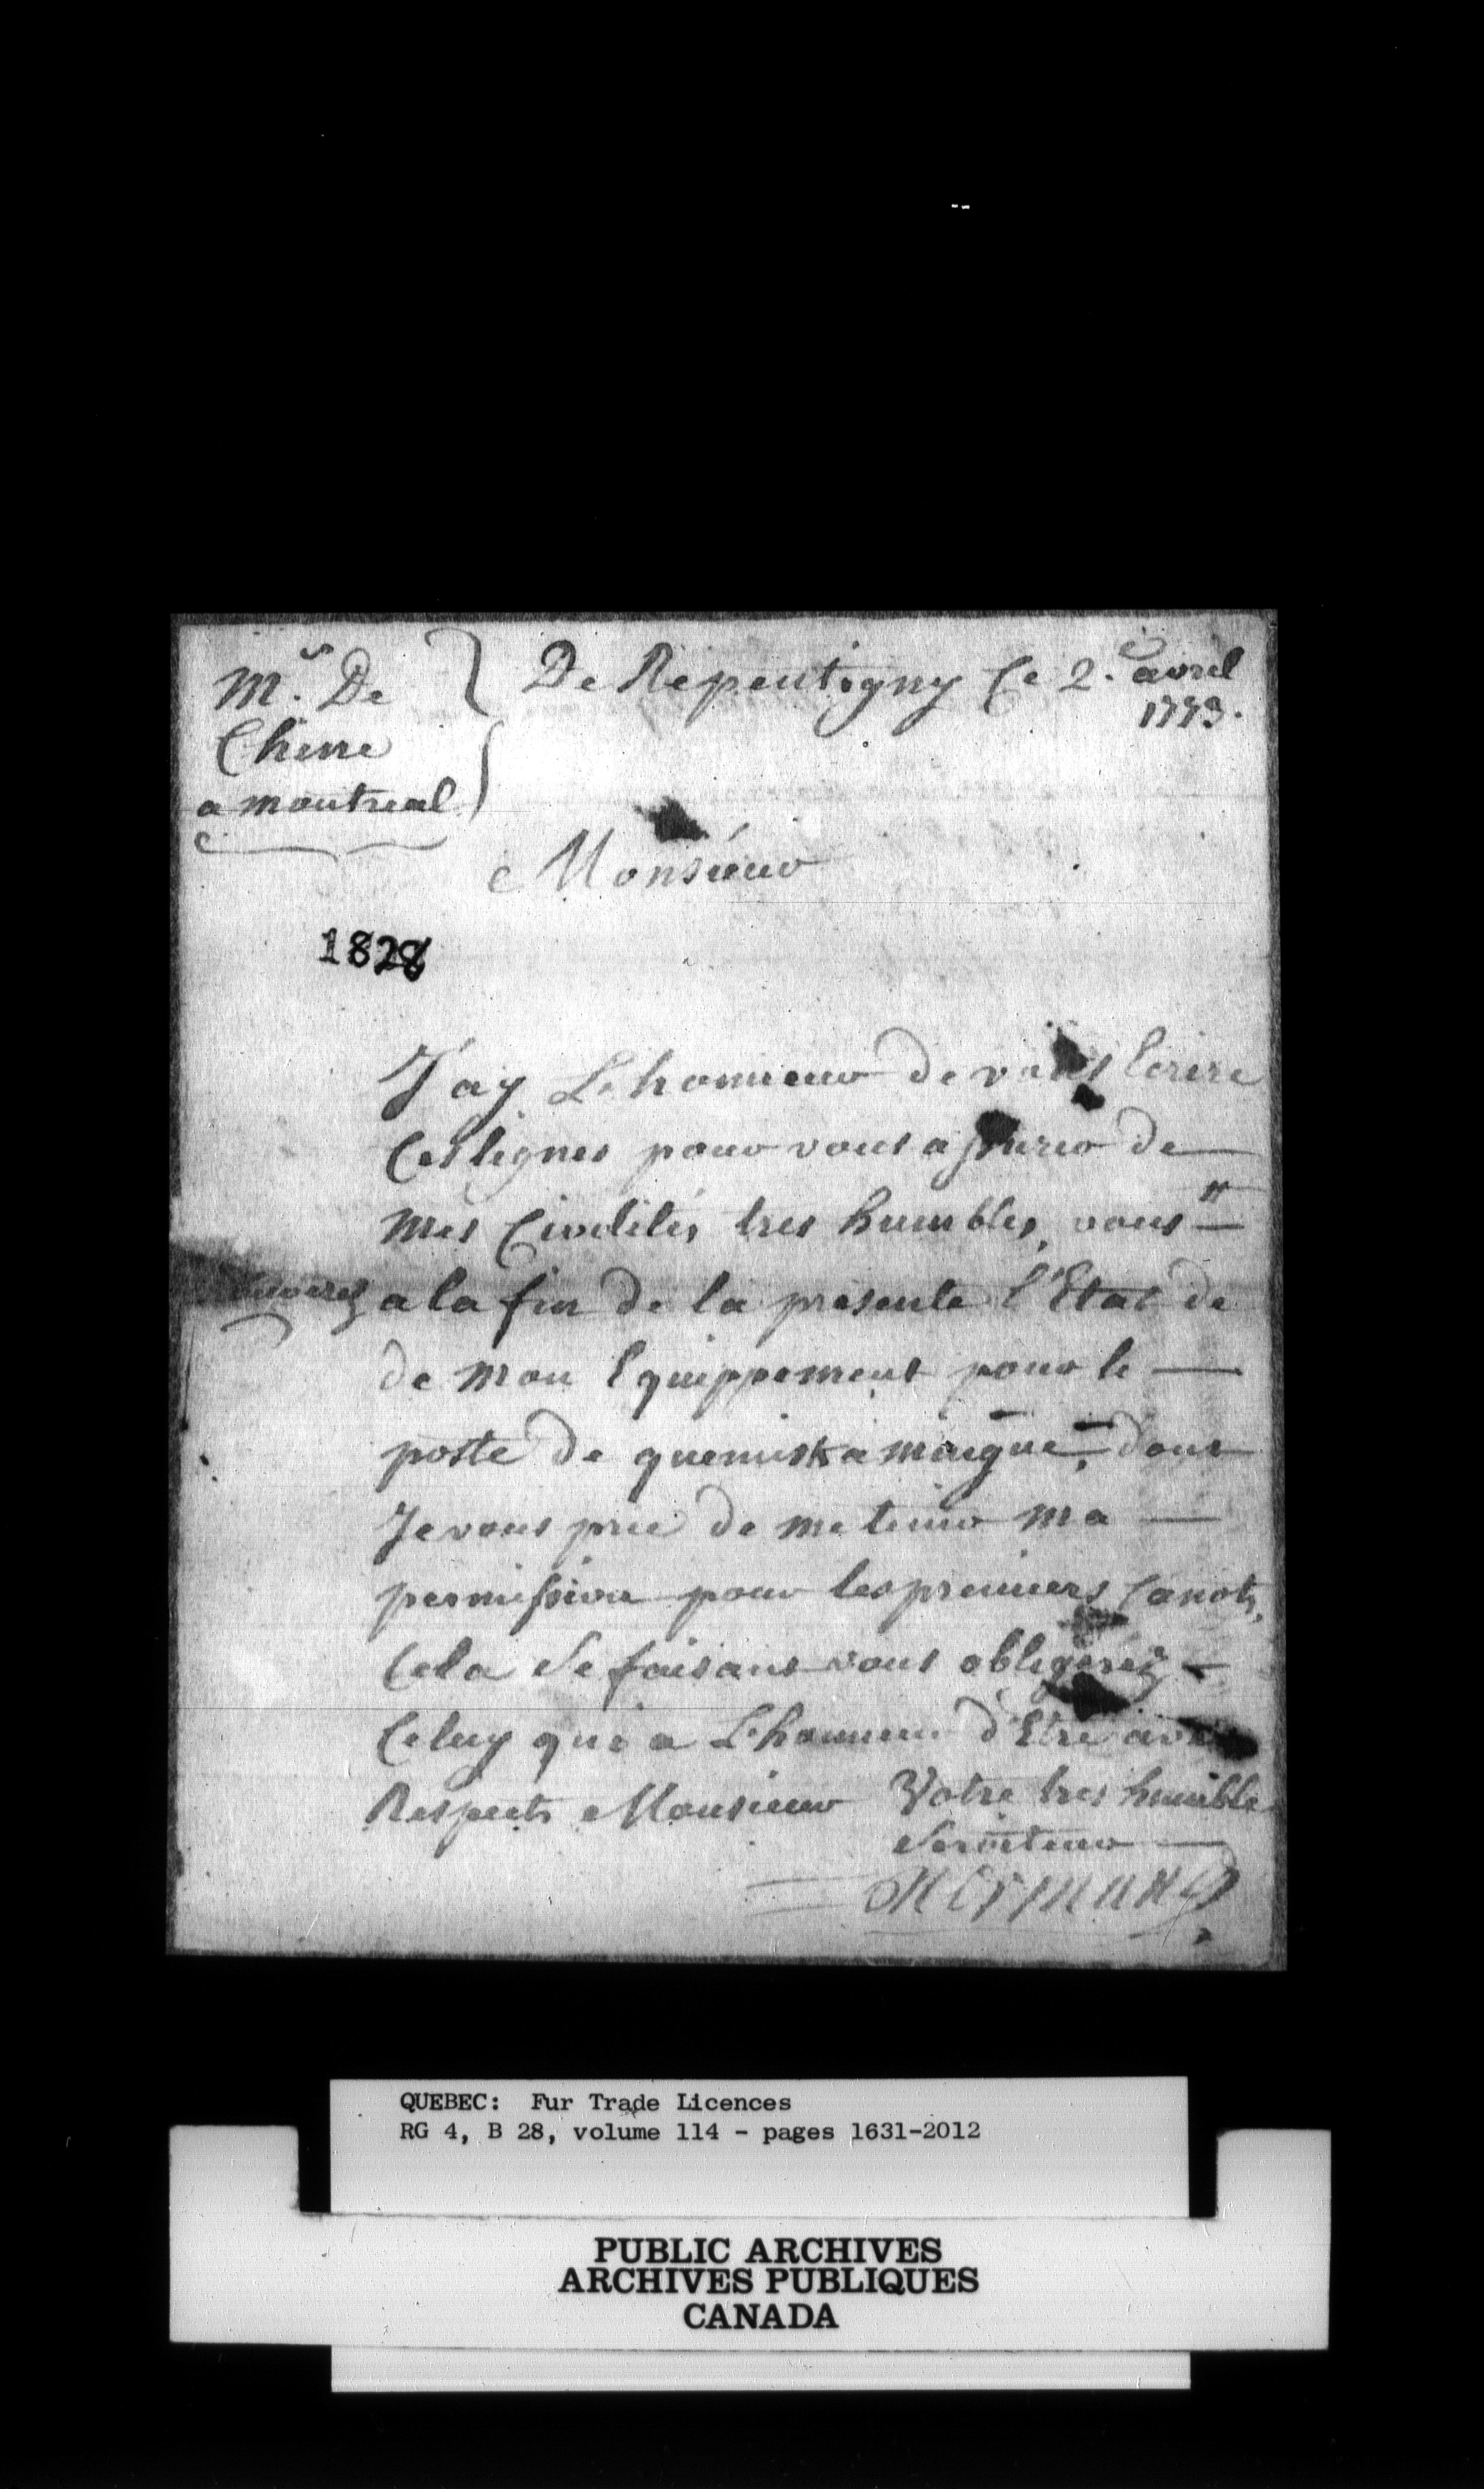 Mr. De
Chene
a montreal
De Repentigny Ce 2.e avril
1773.
Monsieur
1828
J'ay L'honneur de vous Ecrire
Ces lignes pour vous assurer de
mes Civilités tres humbles, vous
a la fin de la presente l'Etat de
de mon Equippement pour le
poste de quemiskamingue, dont
Je vous prie de me tenir ma
permission pour les premiers Canots,
Cela Se faisant vous obligeréz
Celuy qui a L'honneur d'Etre avec
Respects Monsieur Votre tres humble
Serviteur
QUEBEC: Fur Trade Licences
RG 4, B 28, volume 114 - pages 1631-2012
PUBLIC ARCHIVES
ARCHIVES PUBLIQUES
CANADA